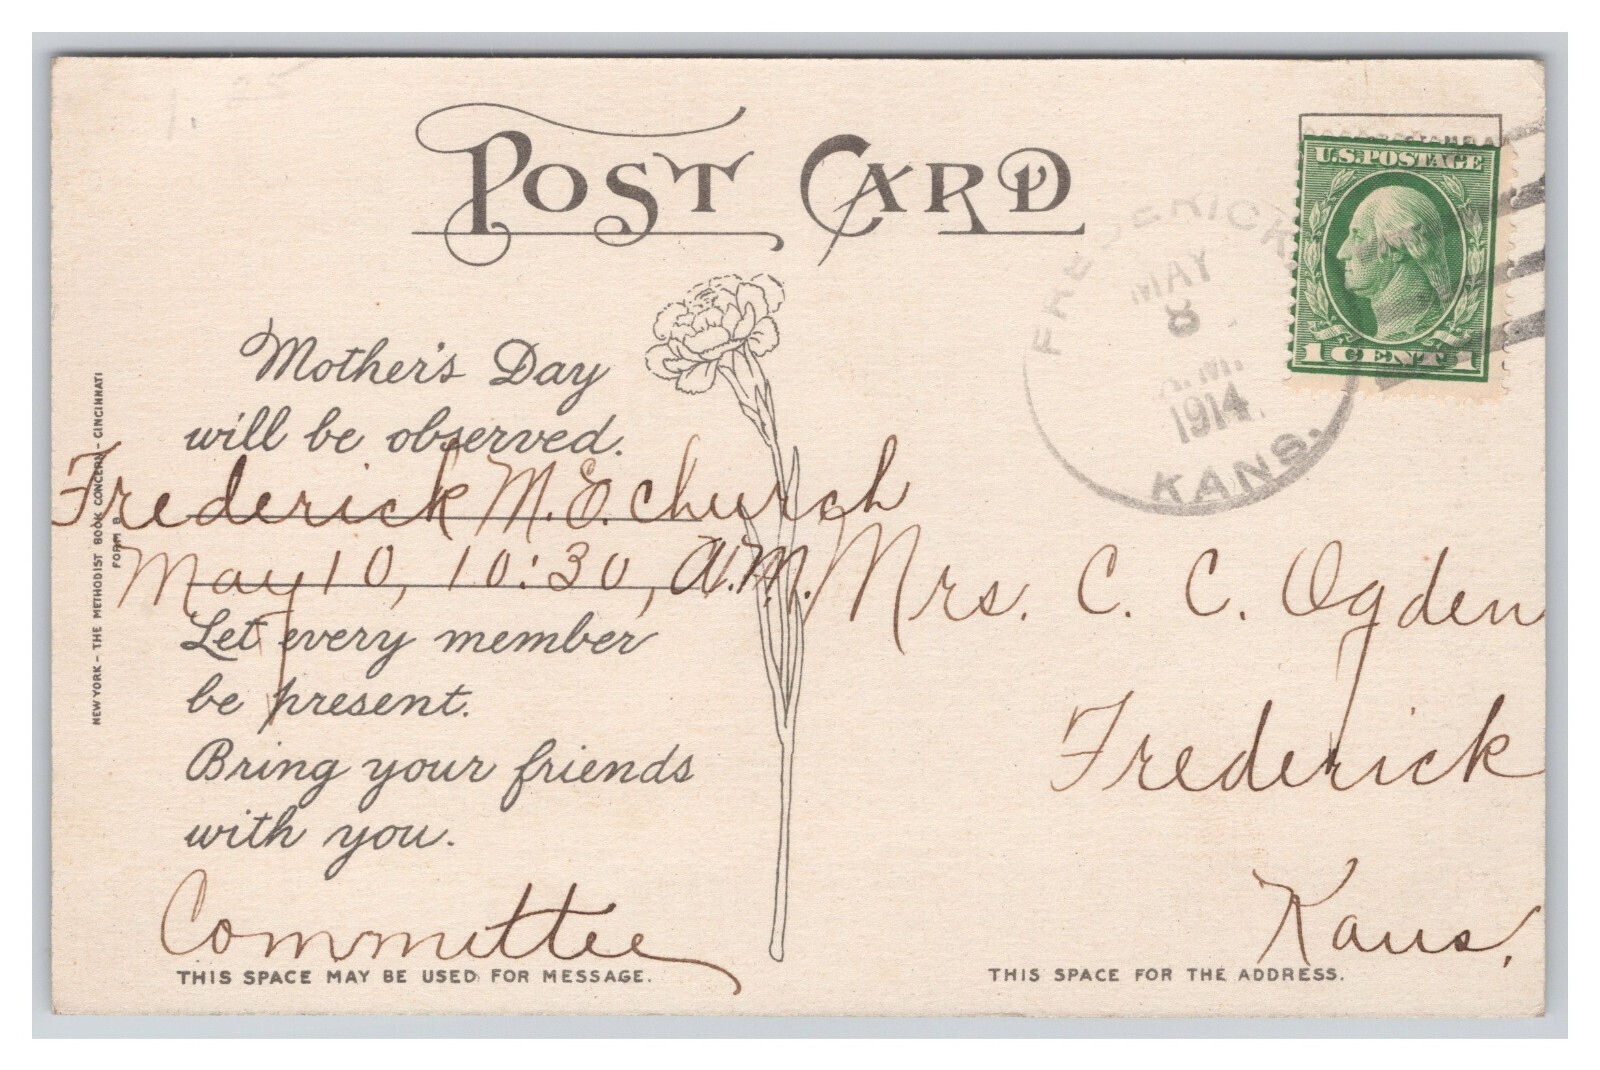 POST CARD
U.S. POSTAGE
1 CENT 1
FREDERICK,
MAY
8
A.M.
1914
KANS.
Mother's Day
will be observed.
Frederick M. E. church
May 10, 10:30, A.M.
Let every member
be present.
Bring your friends
with you.
Committee
THIS SPACE MAY BE USED FOR MESSAGE.
NEW YORK - THE METHODIST BOOK CONCERN - CINCINNATI
FORM 8
Mrs. C. C. Ogden
Frederick
Kans,
THIS SPACE FOR THE ADDRESS.